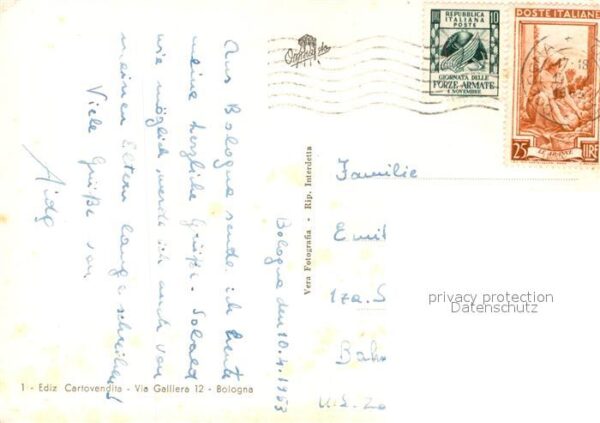 Aus Bologna sende ich heute
meine herzliche Grüße. Sobald
wie möglich, werde ich auch von
meinen Eltern lange schreiben
Viele Grüße von
Aida
Bologna den 10.4.1953
Vera Fotografia - Rip. Interdetta
1 - Ediz Cartovendita - Via Galliera 12 - Bologna
REPUBBLICA
ITALIANA
POSTE
10
GIORNATA DELLE
FORZE ARMATE
4 NOVEMBRE
POSTE ITALIANE
25 LIRE
LE ARANCE
Familie
Emil
Bah
U.S. Zo
privacy protection
Datenschutz